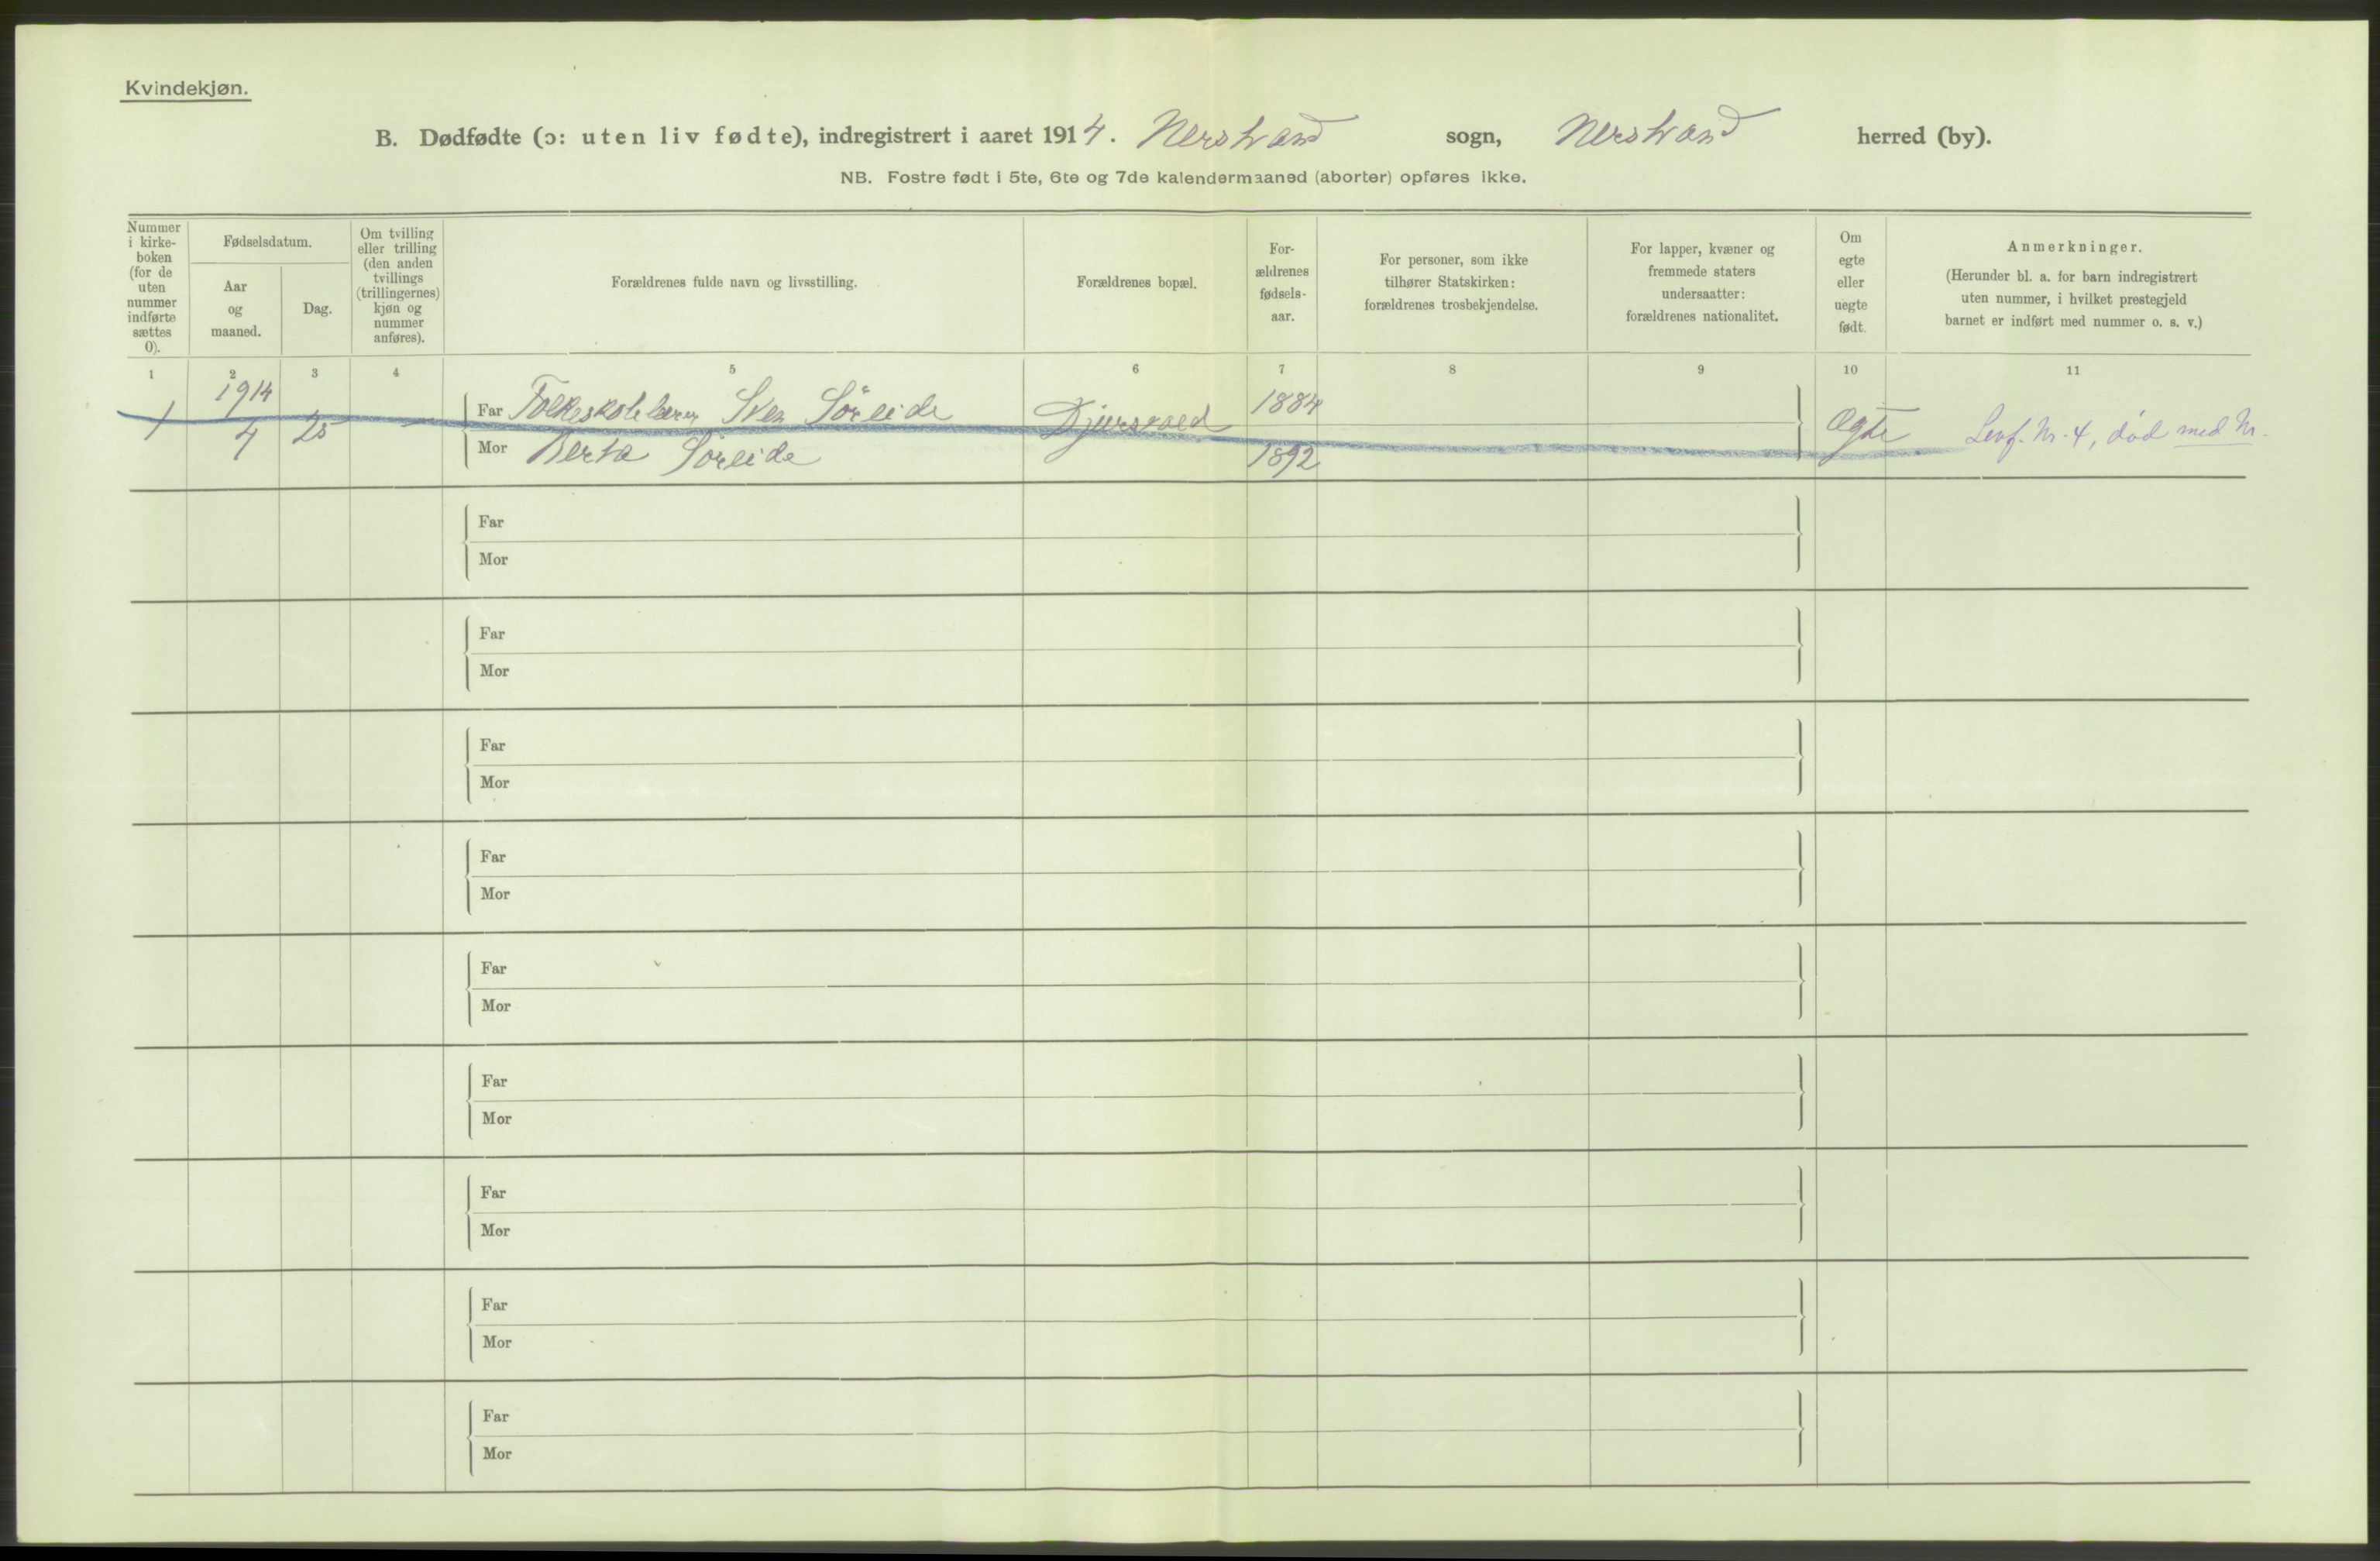 Kvindekjøn.
B. Dødfødte (ɔ: uten liv fødte), indregistrert i aaret 1914. Nerstrand sogn, Nerstrand herred (by).
NB. Fostre født i 5te, 6te og 7de kalendermaaned (aborter) opføres ikke.
Nummer
i kirke-
boken
(for de
uten
nummer
indførte
sættes
0).
Fødselsdatum.
Aar
og
maaned.
Dag.
Om tvilling
eller trilling
(den anden
tvillings
(trillingernes)
kjøn og
nummer
anføres).
Forældrenes fulde navn og livsstilling.
Forældrenes bopæl.
For-
ældrenes
fødsels-
aar.
For personer, som ikke
tilhører Statskirken:
forældrenes trosbekjendelse.
For lapper, kvæner og
fremmede staters
undersaatter:
forældrenes nationalitet.
Om
egte
eller
uegte
født.
Anmerkninger.
(Herunder bl. a. for barn indregistrert
uten nummer, i hvilket prestegjeld
barnet er indført med nummer o. s. v.)
1 2 3 4 5 6 7 8 9 10 11
1914
1 4 25 –
Far Folkeskolelærer Sven Søreide
Mor Berta Søreide
1884
1892
Ægte
Levf. Nr. 4, død med Nr.
Far
Mor
Far
Mor
Far
Mor
Far
Mor
Far
Mor
Far
Mor
Far
Mor
Far
Mor
Far
Mor